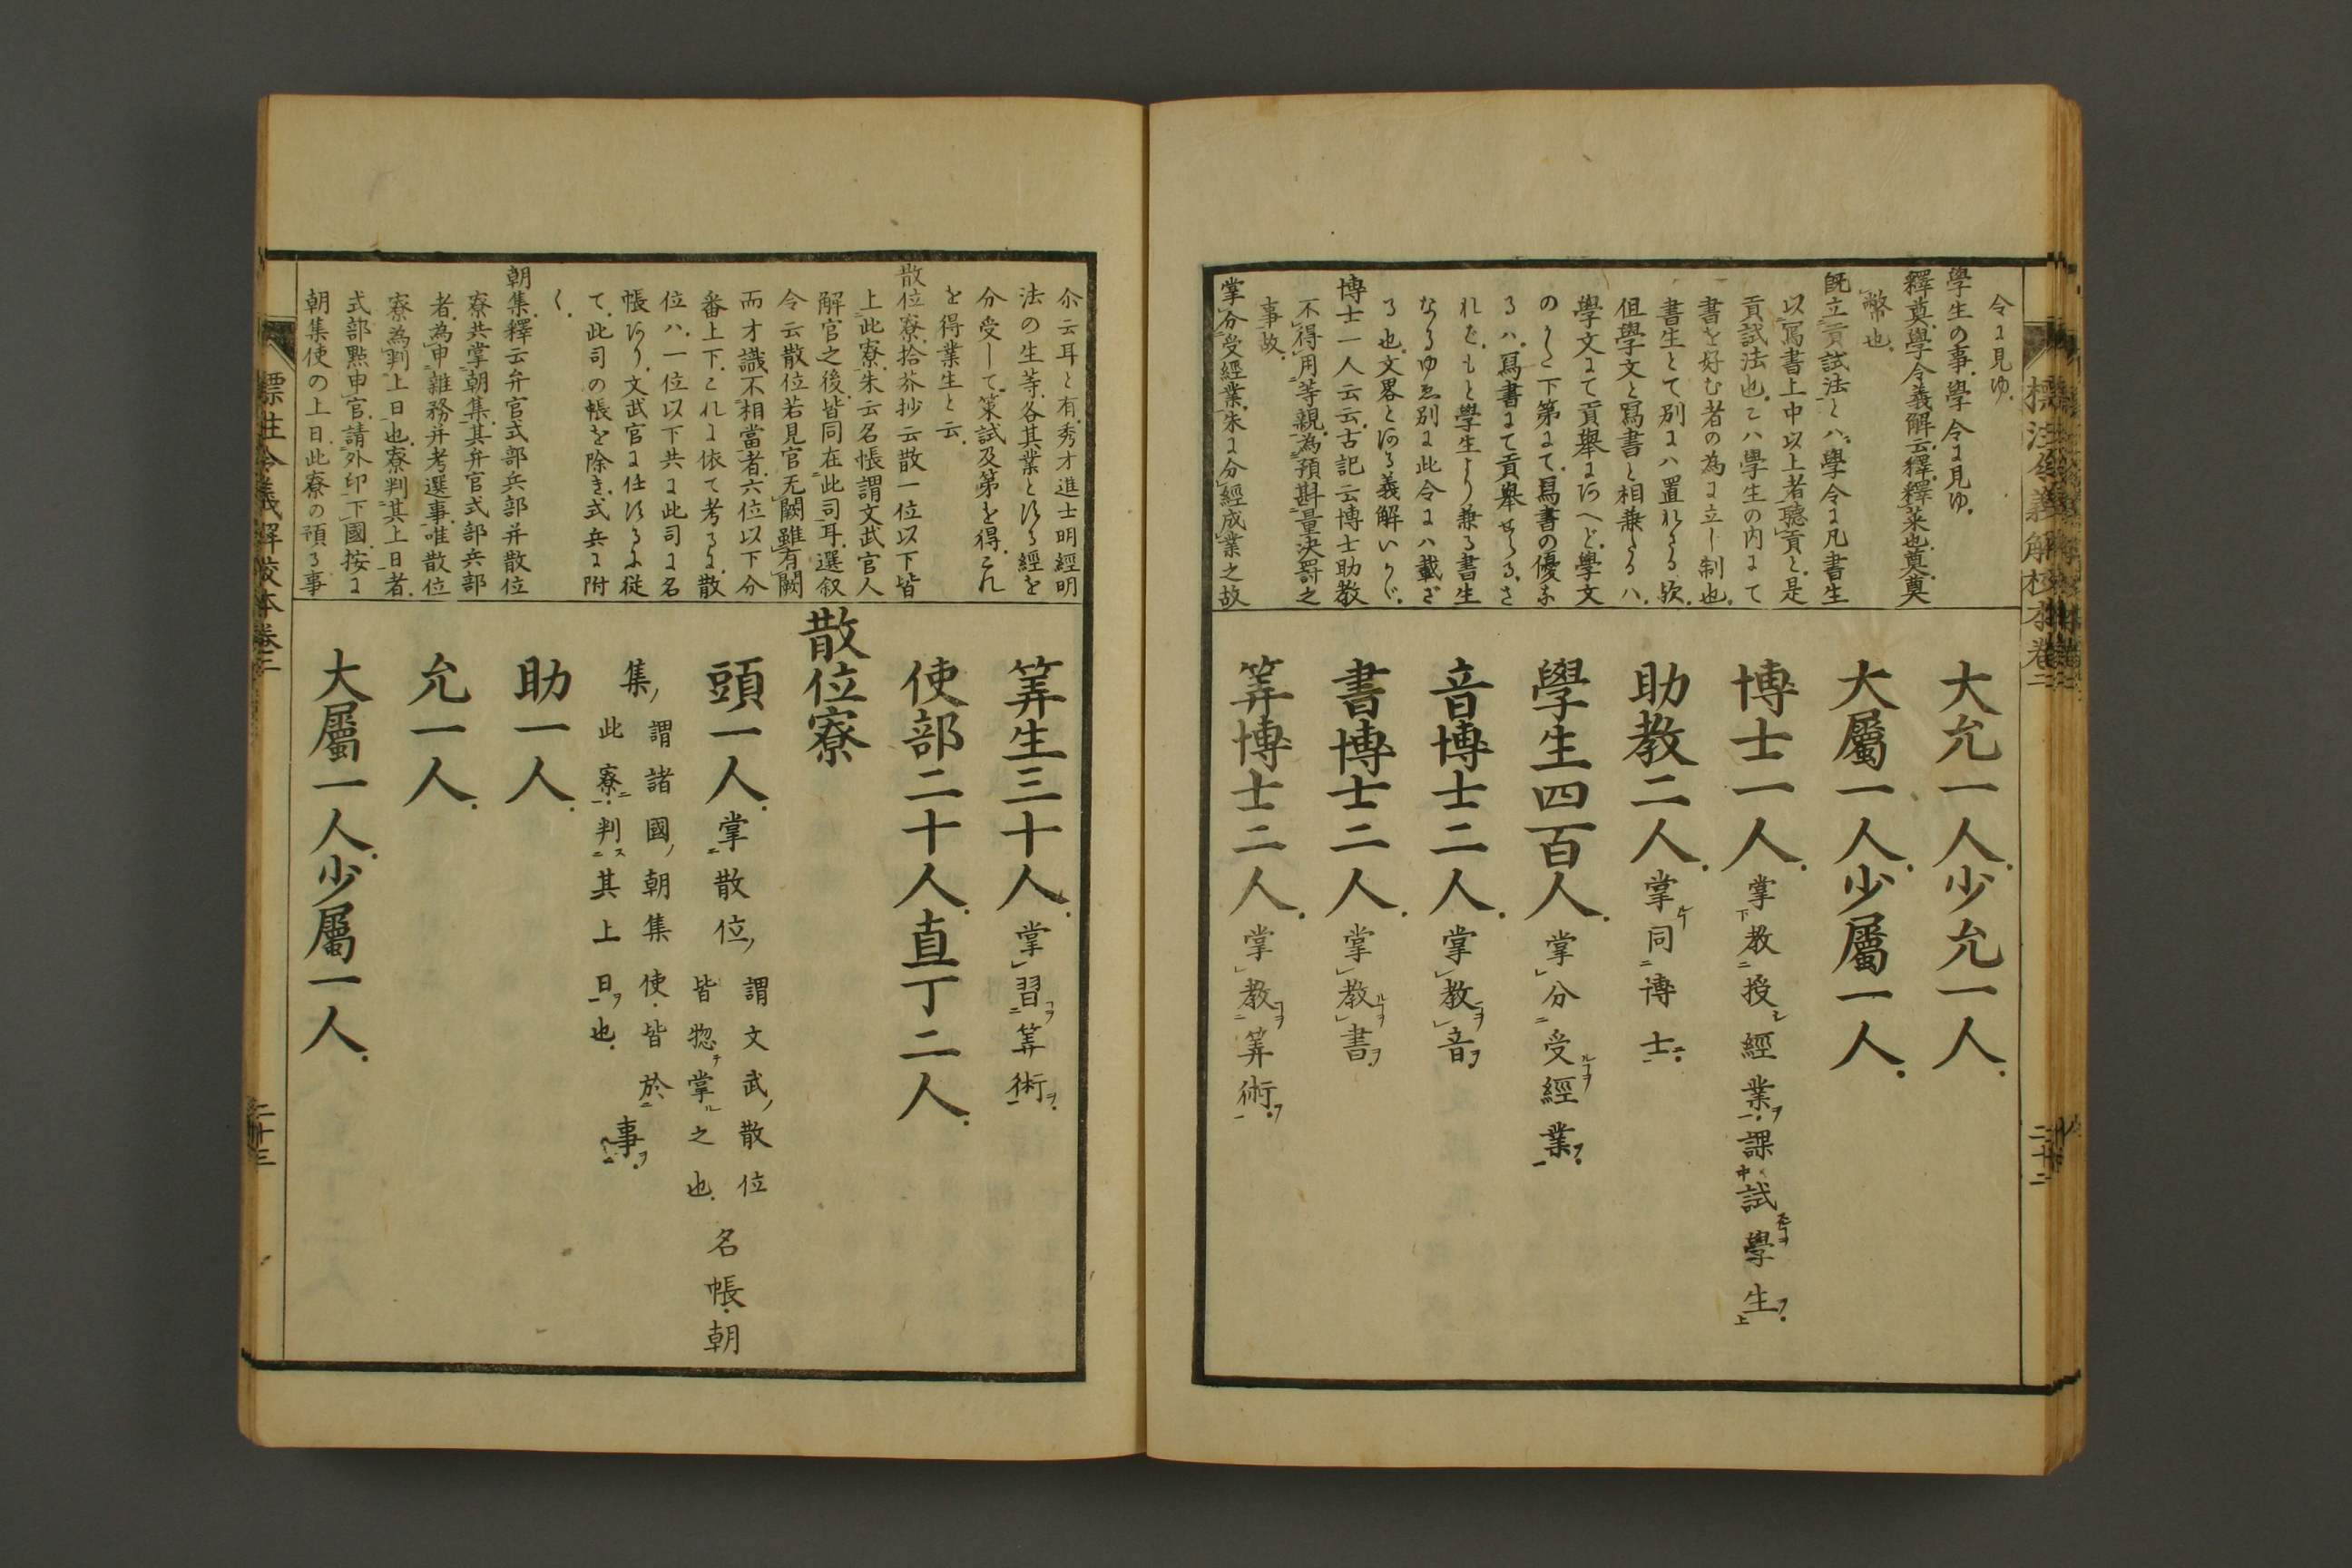 標注令義解校本卷二
二十二
令に見ゆ
學生の事學令に見ゆ
釋奠學令義解云釋釋菜也奠奠
幣也
既立貢試法とハ學令に凡書生
以寫書上中以上者聽貢と是
貢試法也こハ學生の内にて
書を好む者の為に立し制也
書生とて別にハ置れさる欤
但學文と寫書と相兼たるハ
學文にて貢舉にあへど學文
のかた下第にて寫書の優な
るハ寫書にて貢舉せらるさ
れどもと學生より兼る書生
なるゆゑ別に此令にハ載ざ
る也文畧とある義解いかゞ
博士一人云云古記云博士助教
不得用等親為預斟量決罸之
事故
掌分受經業朱に分經成業之故
大允一人少允一人
大屬一人少屬一人
博士一人掌教授經業課試學生
助教二人掌同博士
學生四百人掌分受經業
音博士二人掌教音
書博士二人掌教書
筭博士二人掌教筭術
尒云耳と有秀才進士明經明
法の生等各其業とする經を
分受して策試及第を得これ
を得業生と云
散位寮拾芥抄云散一位以下皆
上此寮朱云名帳謂文武官人
解官之後皆同在此司耳選叙
令云散位若見官无闕雖有闕
而才識不相當者六位以下分
番上下これに依て考るに散
位ハ一位以下共に此司に名
帳あり文武官に任するに従
て此司の帳を除き式兵に附
く
朝集釋云弁官式部兵部并散位
寮共掌朝集其弁官式部兵部
者為申雜務并考選事唯散位
寮為判上日也寮判其上日者
式部㸃申官請外印下國按に
朝集使の上日此寮の預る事
筭生三十人掌習筭術
使部二十人直丁二人
散位寮
頭一人掌散位謂文武散位皆惣掌之也名帳朝
集謂諸國朝集使皆於此寮判其上日也事
助一人
允一人
大屬一人少屬一人
標注令義解校本卷二
二十三